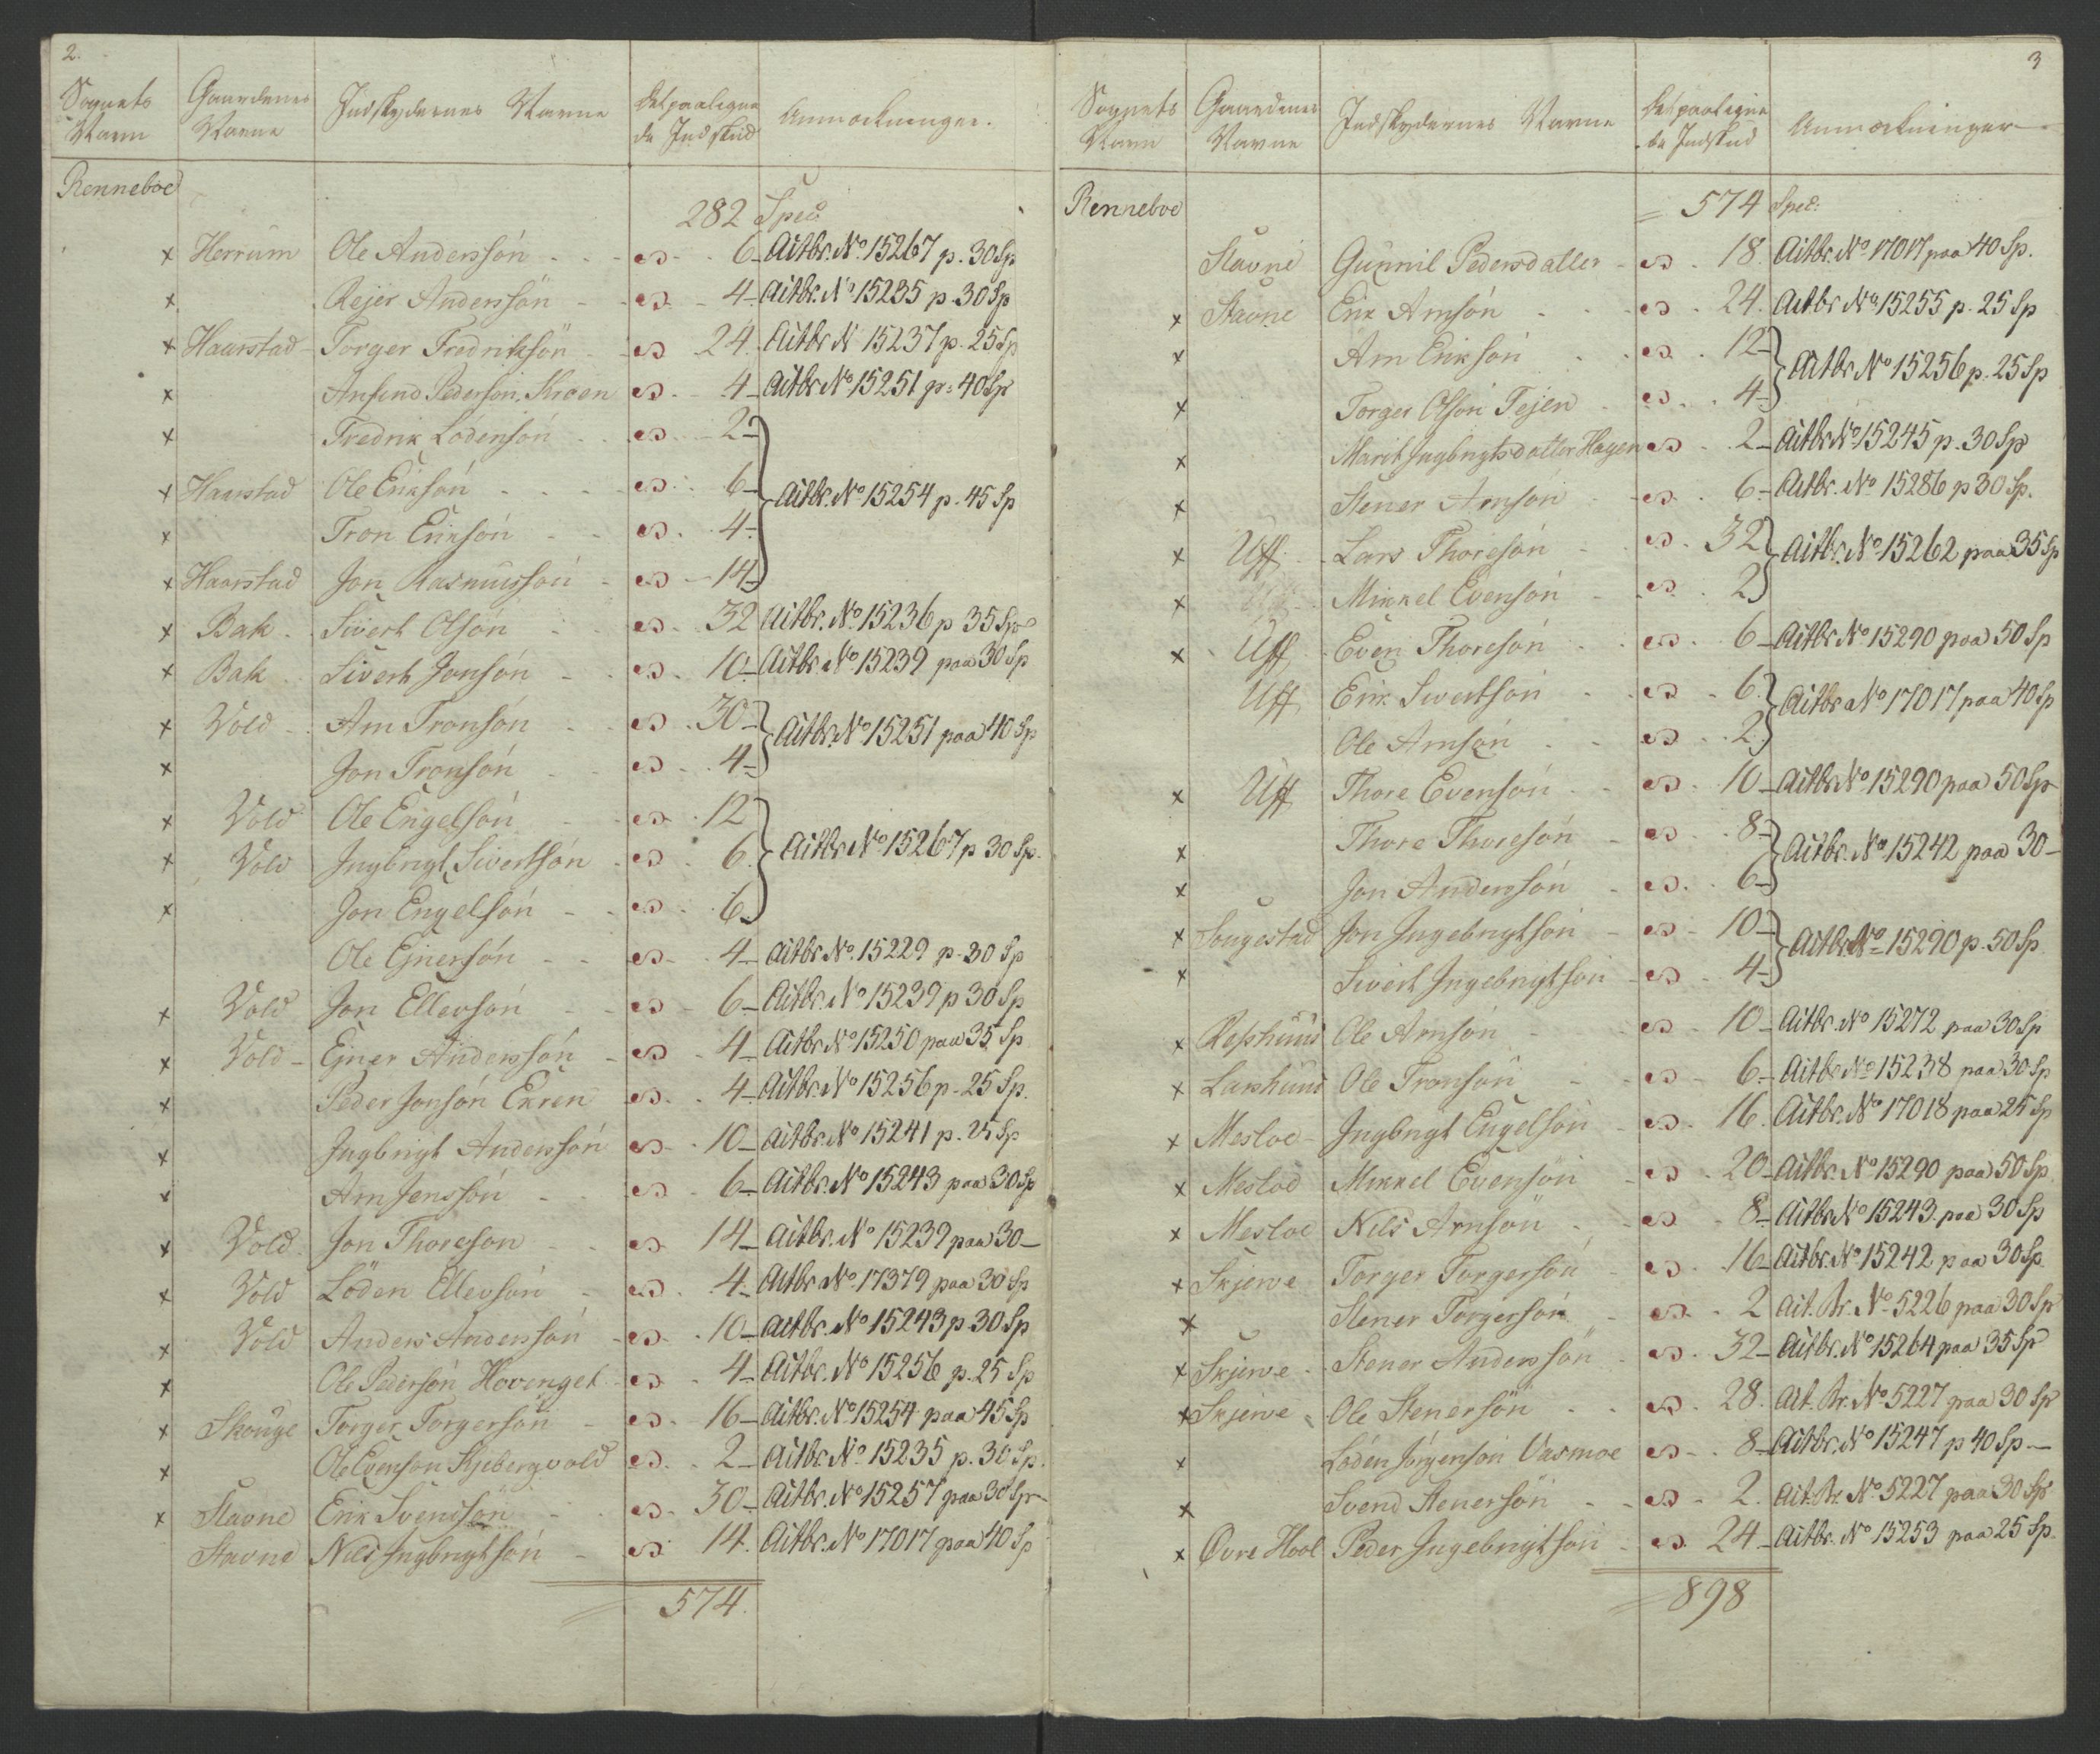 2.
Sognets Navn | Gaardenes Navne | Indskydernes Navne | Det paaligne de Indskud | Anmærkninger.
Renneboe
282 Spec
x Herrum Ole Anderssón 6 Aitbr. No. 15267 p. 30 Sp
x Rejer Anderssön 4 Aitbr. No 15235 p. 30 Sp
x Haarstad Torger Fredriksön 24. Aitbr N 15237 p. 25 Sp
x Ansend Pederson Kroen 4 Aitbr No 15251 p. 40 Sp
x Fredrik Lodensón 2
x Haarstad Ole Eriksón 6 Aitbr. No 15254 p. 45 Sp
x Tron Eriksón 4
x Haarstad Jon Rasmussón 14
x Bak Sivert Olsön 32 Aitbr. No 15236 p 35 Sp
x Bak Sivert Jonsón 10 Aitbr No 15239 paa 30 Sp
x Vold Arn Tronsón 30 Aitbr. No 15251 paa 40 Sp
x Jon Tronsón 4
x Vold Ole Engelsón 12
x Vold Ingbrigt Sivertsón 6 Aitbr No 15267 p 30 Sp.
x Jon Engelsón 6
Ole Ejnersón 4 Aitbr. No. 15229 p. 30 Sp
x Vold Jon Ellevsón 6 Aitbr. No 15239 p 30 Sp
x Vold Ejner Anderssón 4 Aitbr No 15250 paa 35 Sp
x Peder Jonsón Ekren 4 Aitbr. No 15256 p. 25 Sp.
x Ingbrigt Anderssón 10 Aitbr. No 15241 p. 25 Sp
x Arn Jenssón 6 Aitbr. No 15243 paa 30 Sp
x Vold Jon Thoresön 14 Aitbr. No 15239 paa 30
x Vold Löden Ellevsón 4 Aitbr No 17379 paa 30 Sp
x Vold Anders Anderssón 10 Aitbr. No 15243 p. 30 Sp
x Ole Pedersón Hovenget 4 Aitbr. No 15256 p. 25 Sp
x Skouge Torger Torgersön 16 Aitbr. No 15254 paa 45 Sp
x Ole Evenson Kjebergvold 2 Aitbr. No 15235 p. 30 Sp.
x Stavne Erik Svendsön 30 Aitbr. No 15257 paa 30 Sp
Stavne Nils Ingbrigtsón 14. Aitbr. No 17017 paa 40 Sp
574.
3
Sognets Navn | Gaardenes Navne | Indskydernes Navne | Det paaligne de Indskud | Anmærkninger
Renneboe
574 Spec:
Stavne Gunnil Pedersdatter 18. Aitbr. No 17017 paa 40 Sp.
x Stavne Erik Arnsón 24. Aitbr No 15255 p. 25 Sp
x Arn Eriksón 12 Aitbr No 15256 p. 25 Sp
x Torger Olsón Tejen 4
x Marit Ingbrigtsdatter Hagen 2 Aitbr No 15245 p. 30 Sp
x Stener Arnsón 6 Aitbr. No 15286 p 30 Sp.
x Uff Lars Thoresón 32 Aitbr. No 15262 paa 35 Sp
x Mikkel Evensón 2
x Uff Even Thoresón 6 Aitbr No 15290 paa 50 Sp
Uff Erik Sivertsón 6. Aitbr No 17017 paa 40 Sp
Ole Arnsón 2.
x Uff Thore Evensón 10 Aitbr No 15290 paa 50 Sp
x Thore Thoresón 8 Aitbr. No 15242 paa 30
x Jon Anderssón 6
x Sougestad Jon Ingebrigtsón 10 Aitbr No 15290 p. 50 Sp
x Sivert Ingebrigtsón 4
x Resshuus Ole Arnsón 10 Aitbr. No 15272 paa 30 Sp
x Larshuus Ole Tronsón 6 Aitbr No 15238 paa 30 Sp
x Mesloe Ingbrigt Engelsón 16. Aitbr. No 17018 paa 25 Sp
x Mesloe Mikkel Evensön 20 Aitbr. No 15290 paa 50 Sp
x Mesloe Nils Arnsön 8 Aitbr No 15243 paa 30 Sp
x Skjerve Torger Torgersön 16 Aitbr. No 15242 paa 30 Sp.
x Stener Torgersón 2 Ait. Br. No 5226 paa 30 Sp
x Skjerve Stener Anderssön 32 Aitbr. No 15264 paa 35 Sp
x Skjerve Ole Stenersön 28. Ait. Br. No 5227 paa 30 Sp
x Lodén Jörgensön Vasmoe 8 Aitbr. No 15247 p 40 Sp
x Svend Stenersön 2. Ait. Br. No 5227 paa 30 Sp
x Øvre Hool Peder Ingebrigtsön 24 Aitbr. No 15253 paa 25 Sp.
898